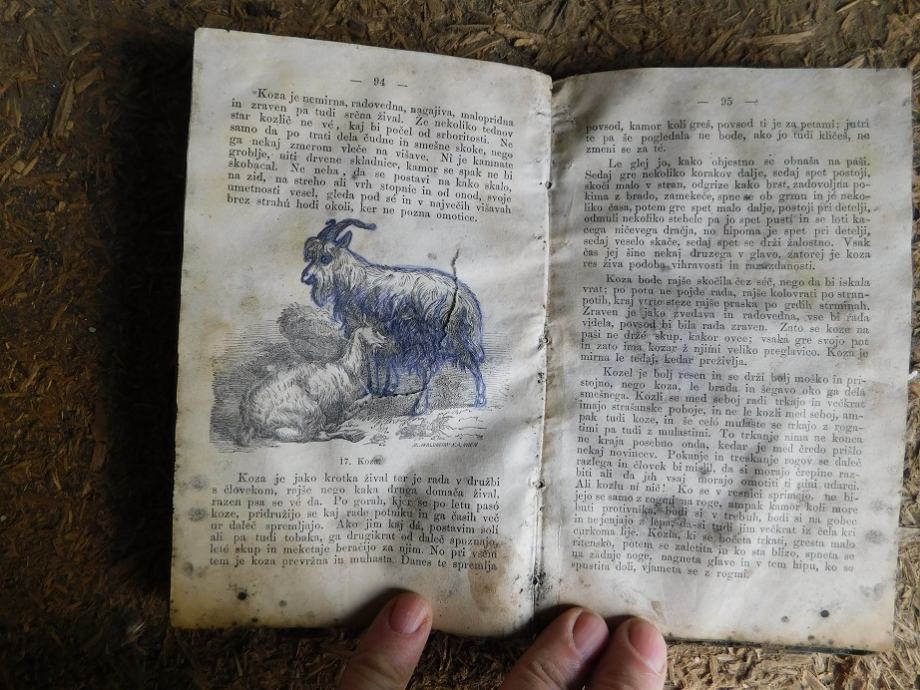 — 94 —
Koza je nemirna, radovedna, nagajiva, malopridna
in zraven pa tudi srčna žival. Že nekoliko tednov
star kozlič ne vé, kaj bi počel od srboritosti. Ne
samo da po trati dela čudne in smešne skoke, nego
ga nekaj zmerom vleče na višave. Ni je kamnate
groblje, niti drvene skladnice, kamor se spak ne bi
skobacal. Ne neha, da se postavi na kako skalo,
na zid, na streho ali vrh stopnic in od onod, svoje
umetnosti vesel, gleda pod sé in v največih višavah
brez strahú hodi okoli, ker ne pozna omotice.
17. Koza.
Koza je jako krotka žival ter je rada v družbi
s človekom, rajše nego kaka druga domača žival,
razen psa se vé da. Po gorah, kjer se po letu pasó
koze, pridružijo se kaj rade potniku in ga časih več
ur daleč spremljajo. Ako jim kaj dá, postavim soli
ali pa tudi tobaka, ga drugikrat od daleč spuznajo,
leté skup in meketaje beračijo za njim. No pri vsem
tem je koza prevržna in muhasta. Danes te spremlja
— 95 —
povsod, kamor koli greš, povsod ti je za petami; jutri
te pa še pogledala ne bode, ako jo tudi kličeš, ne
zmeni se za té.
Le glej jo, kako objestno se obnaša na páši.
Sedaj gre nekoliko korakov dalje, sedaj spet postoji,
skoči malo v stran, odgrize kako brst, zadovoljna po-
kima z brado, zamekeče, spne se ob grmu in je neko-
liko časa, potem gre spet malo dalje, postoji pri detelji,
odmuli nekoliko stebelc pa jo spet pusti in se loti ka-
cega ničevega dračja, no hipoma je spet pri detelji,
sedaj veselo skače, sedaj spet se drži žalostno. Vsak
čas jej šine nekaj druzega v glavo, zatorej je koza
res živa podoba vihravosti in razuzdanosti.
Koza bode rajše skočila čez séč, nego da bi iskala
vrat; po potu ne pojde rada, rajše kolovrati po stran-
potih, kraj vtrte steze rajše praska po grdih strminah.
Zraven je jako zvedava in radovedna, vse bi rada
videla, povsod bi bila rada zraven. Zato se koze na
paši ne držé skup, kakor ovce; vsaka gre svojo pot
in zato ima kozar ž njimi veliko preglavico. Koza je
mirna le tedaj, kedar preživlja.
Kozel je bolj resen in se drži bolj moško in pri-
stojno, nego koza, le brada in šegavo oko ga dela
smešnega. Kozli se med seboj radi trkajo in večkrat
imajo strašanske poboje, in ne le kozli med seboj, am-
pak tudi koze, in še celó mulaste se trkajo z roga-
timi pa tudi z mulastimi. To trkanje nima ne konca
ne kraja posebno onda, kedar je med čredo prišlo
nekaj novincev. Pokanje in treskanje rogov se daleč
razlega in človek bi mislil, da si morajo črepine raz-
biti ali da jih vsaj morajo omotiti ti silni udarci.
Ali kozlu ni nič! Ko se v resnici sprimejo, ne bi-
jejo se samo z rogmi na roge, ampak kamor koli more
butí protivnika, bodi si v trebuh, bodi si na gobec
in nejenjajo z lepa, da-si tudi jim večkrat iz čela kri
curkoma lije. Kozla, ki se hočeta trkati, gresta malo
ritensko, potem se zaletita in ko sta blizo, spneta se
na zadnje noge, nagneta glave in v tem hipu, ko se
spustita doli, vjameta se z rogmi.